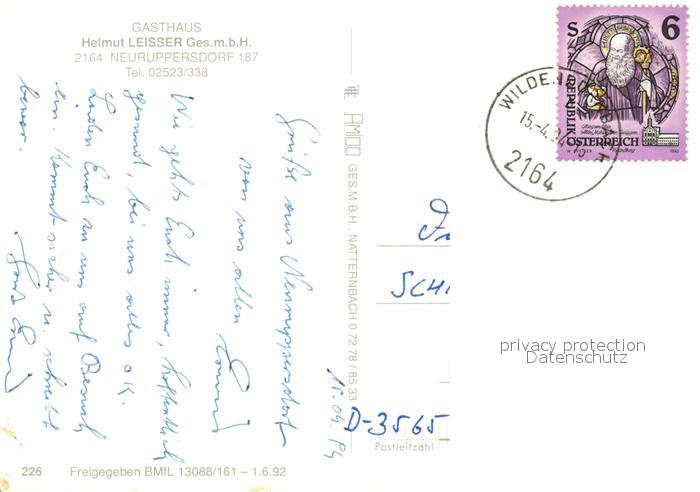 GASTHAUS
Helmut LEISSER Ges.m.b.H.
2164 NEURUPPERSDORF 187
Tel. 02523/338
15.04.94
Grüße aus Neuruppersdorf
von uns allen
Wie geht's Euch immer, hoffentlich
gesund, bei uns alles OK.
Laden Euch zu uns auf Besuch
ein. Kommt sicher u. schreibt
bevor.
AMIDO GES.M.B.H., NATTERNBACH 0 72 78 / 85 33
S 6
REPUBLIK
ÖSTERREICH
15.-4.
2164
SCHI
privacy protection
Datenschutz
D-3565
Postleitzahl
226 Freigegeben BMfL 13088/161 – 1.6.92